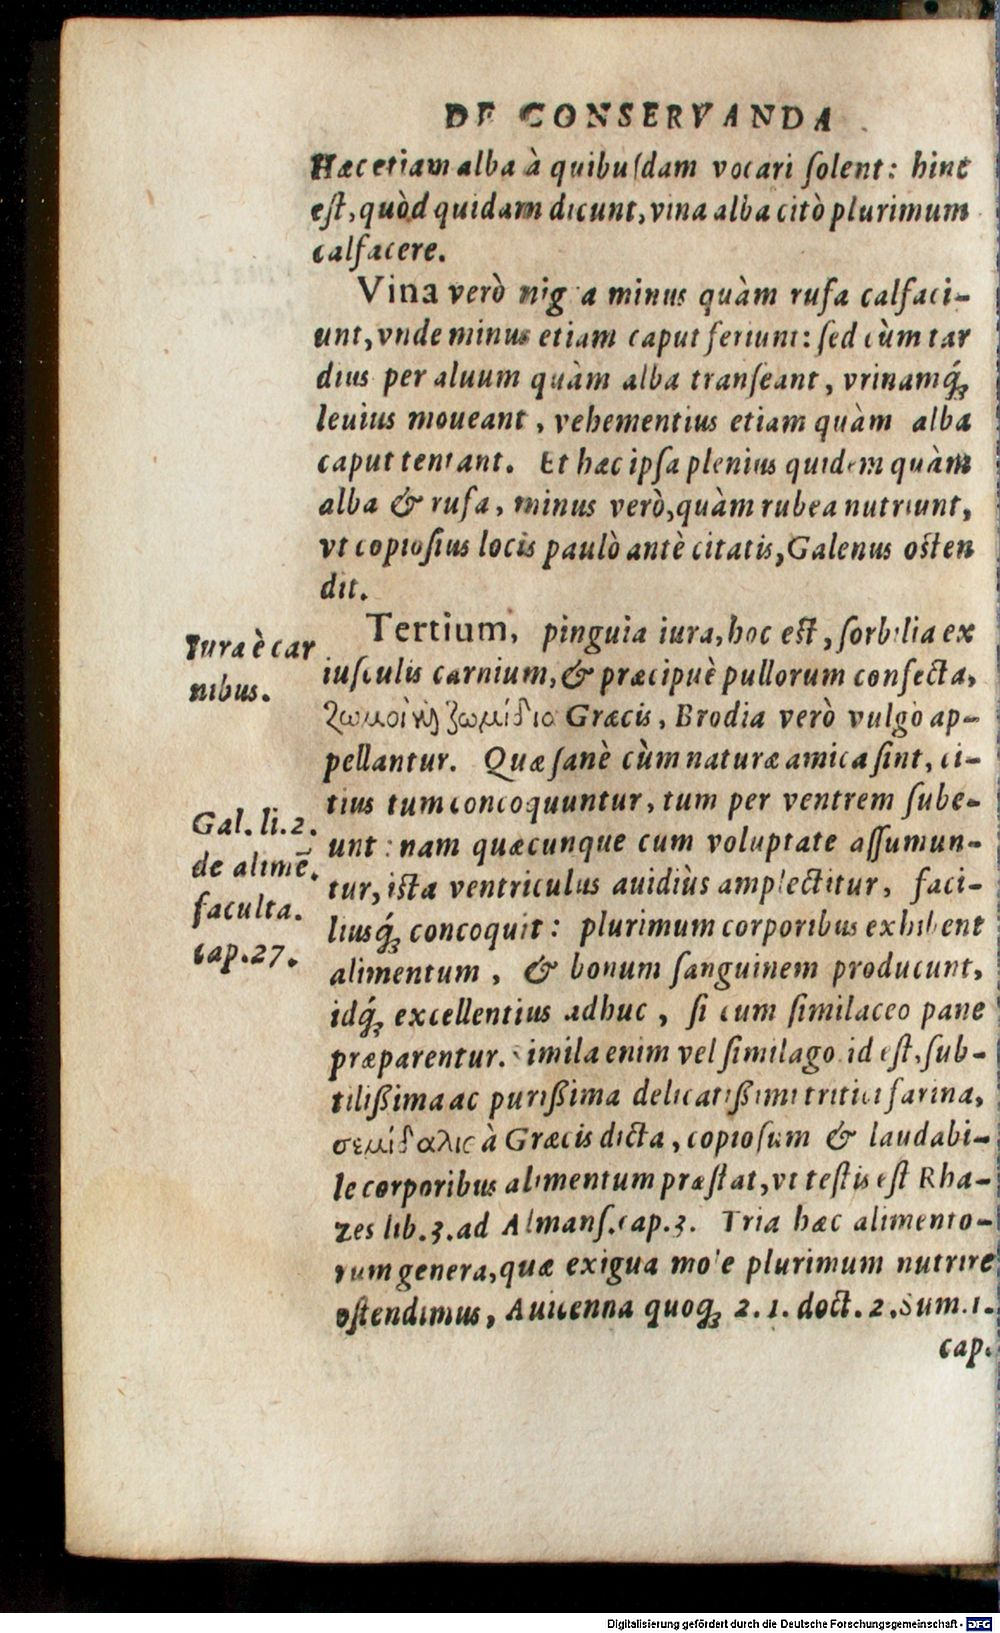 DE CONSERVANDA
Hæc etiam alba à quibuſdam vocari ſolent: hinc
eſt, quòd quidam dicunt, vina alba citò plurimum
calfacere.
Vina verò nigra minus quàm rufa calfaci-
unt, vnde minus etiam caput feriunt: ſed cùm tar
dius per aluum quàm alba tranſeant, vrinamq́;
leuius moueant, vehementius etiam quàm alba
caput tentant. Et hæc ipſa plenius quidem quàm
alba & rufa, minus verò, quàm rubea nutriunt,
vt copioſius locis paulò antè citatis, Galenus oſten
dit.
Tertium, pinguia iura, hoc eſt, ſorbilia ex
Iura è car
nibus.
iuſculis carnium, & præcipuè pullorum confecta,
ζωμοὶ ἢ ζωμίδια Græcis, Brodia verò vulgo ap-
pellantur. Quæ ſanè cùm naturæ amica ſint, ci-
tius tum concoquuntur, tum per ventrem ſube-
Gal. li. 2.
de alimē.
faculta.
cap. 27.
unt: nam quæcunque cum voluptate aſſumun-
tur, iſta ventriculus auidiùs amplectitur, faci-
liusq́; concoquit: plurimum corporibus exhibent
alimentum, & bonum ſanguinem producunt,
idq́; excellentius adhuc, ſi cum ſimilaceo pane
præparentur. Simila enim vel ſimilago id eſt, ſub-
tilißima ac purißima delicatißimi tritici farina,
σεμίδαλις à Græcis dicta, copioſum & laudabi-
le corporibus alimentum præſtat, vt teſtis eſt Rha-
zes lib. 3. ad Almanſ. cap. 3. Tria hæc alimento-
rum genera, quæ exigua mole plurimum nutrire
oſtendimus, Auicenna quoq; 2. 1. doct. 2. Sum. 1.
cap.
Digitalisierung gefördert durch die Deutsche Forschungsgemeinschaft - DFG